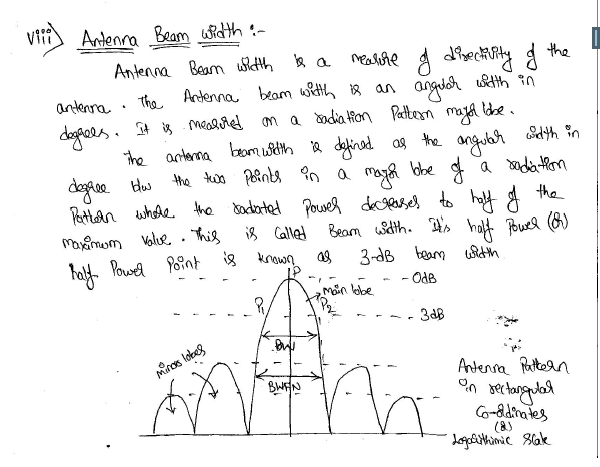 viii) Antenna Beam width :-
Antenna Beam width is a measure of directivity of the
antenna. The Antenna beam width is an angular width in
degrees. It is measured on a radiation Pattern major lobe.
The antenna beamwidth is defined as the angular width in
degree b/w the two points in a major lobe of a radiation
Pattern where the radiated Power decreases to half of the
maximum value. This is called Beam width. It's half Power (or)
half Power Point is known as 3-dB beam width
P
0dB
main lobe
P1 P2
3dB
BW
minor lobes
BWFN
Antenna Pattern
in rectangular
Co-ordinates
(or)
Logarithimic Slale